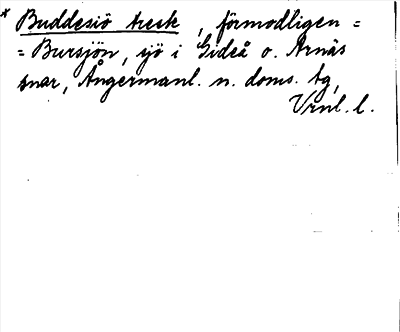 * Buddesiö tresk, förmodligen =
= Bursjön, sjö i Gideå o. Arnäs
snar, Ångermanl. n. doms. tg,
Vrnl. l.